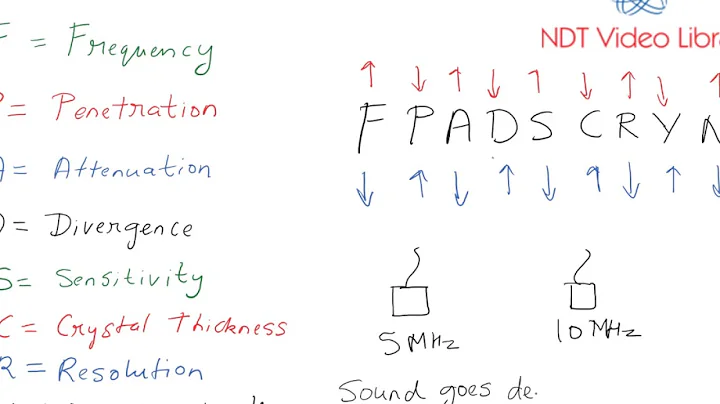 F = Frequency
P = Penetration
A = Attenuation
D = Divergence
S = Sensitivity
C = Crystal Thickness
R = Resolution
NDT Video Libr
↑ ↓ ↑ ↓ ↑ ↓ ↑ ↓ ↑
F P A D S C R Y N
↓ ↑ ↓ ↑ ↓ ↑ ↓ ↑ ↓
5 MHz
10 MHz
Sound goes de.